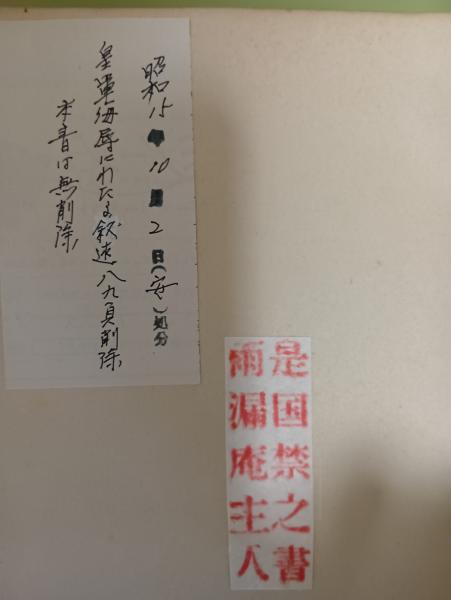 昭和15年10月2日(安)処分
皇軍侮辱にわたる叙述八九頁削除
本書は無削除
是国禁之書
雨漏庵主人